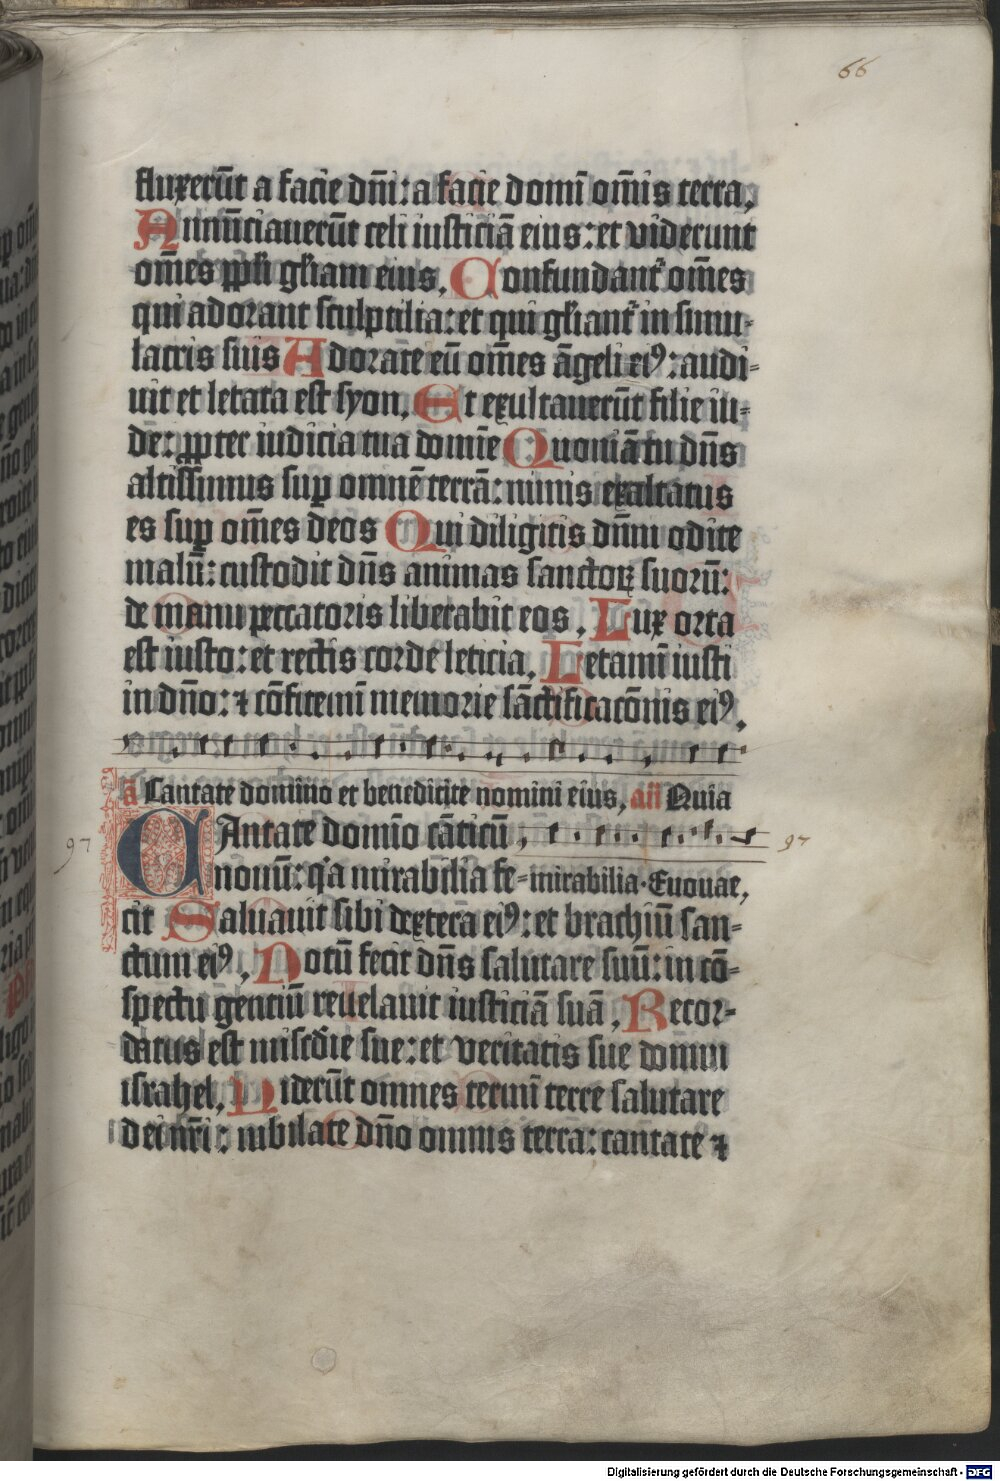 66
fluxerūt a facie dn̄i: a facie domī om̄is terra.
Annūciauerūt celi iusticiā eius: et viderunt
om̄es ppl̄i gl̄iam eius. Confundant᷑ om̄es
qui adorant sculptilia: et qui gl̄iant᷑ in simu-
lacris suis Adorate eū om̄es āgeli eiꝰ: audi-
uit et letata est syon. Et exultauerūt filie iu-
de: ꝓpter iudicia tua domīe Quoniā tu dn̄s
altissimus suꝑ omnē terrā: nimis exaltatus
es suꝑ om̄es deos Qui diligitis dn̄m odite
malū: custodit dn̄s animas sanctoꝝ suorū:
de manu peccatoris liberabit eos. Lux orta
est iusto: et rectis corde leticia. Letamī iusti
in dn̄o: ⁊ cōfitemī memorie sāctificacōnis eiꝰ.
a̅ Cantate domino et benedicite nomini eius, an̄ Quia
97 CAntate domīo cāticū 97
nouū: q̓a mirabilia fe- mirabilia. Euouae,
cit Saluauit sibi dextera eiꝰ: et brachiū san-
ctum eiꝰ. Notū fecit dn̄s salutare suū: in cō-
spectu gentiū reuelauit iusticiā suā. Recor-
datus est misc̄die sue: et veritatis sue domui
israhel. Viderūt omnes termī terre salutare
dei nr̄i: iubilate dn̄o omnis terra: cantate ⁊
Digitalisierung gefördert durch die Deutsche Forschungsgemeinschaft - DFG